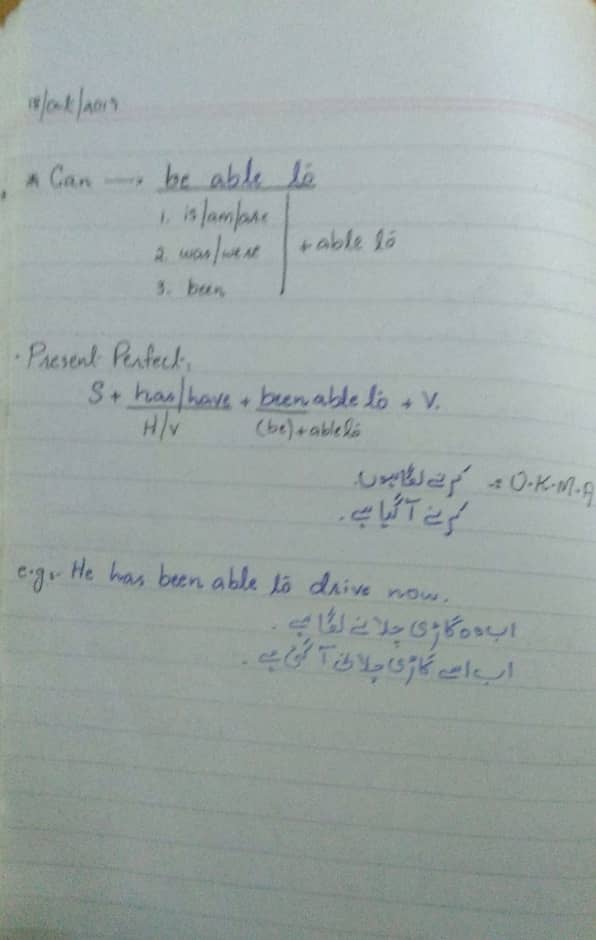 18/Oct/2019
* Can → be able to
1. is/am/are
2. was/were + able to
3. been
. Present Perfect,
S + has/have + been able to + V.
H/V (be) + able to
کرنے لگا ہوں. = O.K.M.A
کرنے آ گیا ہے.
e.g:- He has been able to drive now.
اب وہ گاڑی چلانے لگا ہے.
اب اسے گاڑی چلانی آ گئی ہے.